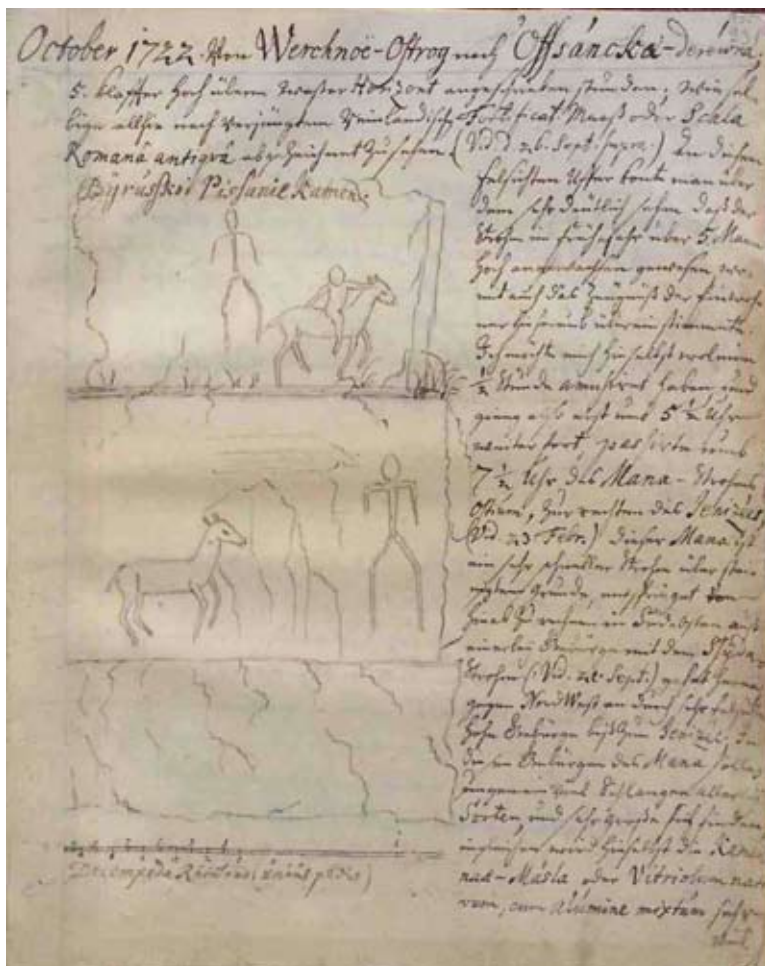 October 1722. Von Werchnoë-Ostrog nach Offsáncka-derewna,
5. Klaffter hoch überm Wasser Horizont angeschrieben stunden, wie sel-
bige allhie nach verjüngtem Reinländisch Fortificat. Maaß oder Scala
Romana antiqva abgezeichnet zu sehen (Vid. d. 26. Sept. supra.) An diesem
Byrusskoi Pissanie Kamen.
felsichten Uffer konte man über
dem sehr deutlich sehen daß der
Strohm im Frühejahr über 5. Mann
hoch angewachsen gewesen, wo-
mit auch das Zeugniß der
übereinstimmte.
Ich mochte mich hieselbst wol
½ Stunde haben, und
gieng also erst um 5½ Uhr
weiter fort, passirte umb
7½ Uhr des Mana-Strohms
Ostium, zur rechten des Jenizéis,
(Vid. 23. Febr.) dieser Mana ist
ein sehr schneller Strohm über stei-
nigtem Grunde, entspringet von
hier zu rechnen in Südosten auß
einerley Gebürge mit dem
Strohm (Vid. Sept.) gehet hernach
gegen NordWest an durch sehr felsichte
hohe Gebürge biß zum Jenizéi, In
diesen Gebürgen des Mana sollen
ungemein viel Schlangen aller
Sorten, und sehr große sich finden,
ingleichen wird hieselbst die Kame-
naa-Másla oder Vitriolum nati-
vum, cum alumine mixtum sehr
viel
Decempeda Rhenana